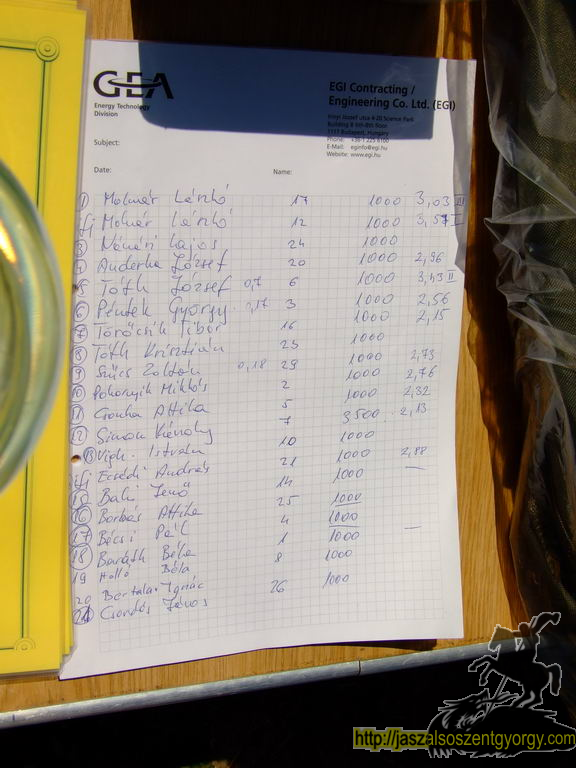 GEA
Energy Technology
Division
EGI Contracting /
Engineering Co. Ltd. (EGI)
Irinyi József utca 4-20 Science Park
Building B 4th-8th floor
1117 Budapest, Hungary
Phone: +36-1 225 6100
E-Mail: eginfo@egi.hu
Website: www.egi.hu
Subject:
Date: Name:
1 Molnár László 17 1000 3,03 III
ifj Molnár László 12 1000 3,57 I
3 Lajos 24 1000
4 Anderka József 20 1000 2,96
5 Tóth József 0,7 6 1000 3,43 II
6 Péntek György 0,17 3 1000 2,56
7 Töröcsik Tibor 16 1000 2,15
8 Tóth Krisztián 23 1000
9 Szűcs Zoltán 0,18 29 1000 2,73
10 Pokornyik Miklós 2 1000 2,76
11 Csonka Attila 5 1000 2,32
12 Simon Károly 7 3500 2,13
13 Vigh István 10 1000
ifj Ecsédi András 21 1000 2,88
15 Bali Jenő 14 1000 —
16 Borbás Attila 25 1000
17 Bécsi Pál 4 1000
18 Baráth Béla 1 1000 —
19 Holló Béla 8 1000
20 Bertalan Ignác
21 Csondós János 26 1000
http://jaszalsoszentgyorgy.com/